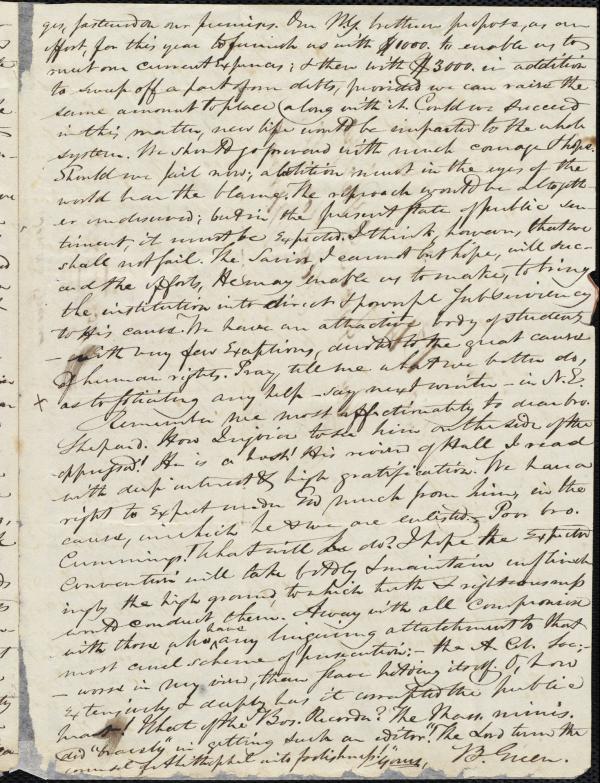 ges, fastened on our premises. Our N.Y. brethren propose, as an
effort, for this year to furnish us with $1000. to enable us to
meet our current expenses; & then with $3000. in addition
to swap off a part of our debts, provided we can raise the
same amount to place along with it. Could we succeed
in this matter, new life would be imparted to the whole
system. We should go forward with much courage & hope.
Should we fail now; abolition must in the eyes of the
world bear the blame. The reproach would be altogeth-
er undeserved; but in the present state of public sen-
timent, it must be expected. I think, however, that we
shall not fail. The Savior, I cannot but hope, will suc-
ceed the efforts, He may enable us to make, to bring
the institution into direct & powerful subserviency
to His cause. We have an attractive body of students
— with very few exceptions, devoted to the great cause
of human rights. Pray, tell me what we better do,
x as to soliciting any help — say next winter — in N.E.
Remember me most affectionately to dear bro.
Shepard. How I rejoice to see him on the side of the
oppressed! He is a host! His review of Hall I read
with deep interest & high gratification. We have a
right to expect under God much from him, in the
cause, in which he & we are enlisted. Poor bro.
Cummings! What will he do? I hope the expected
Convention will take boldly & maintain unflinch
ingly the high ground, to which truth & righteousness
would conduct them. Away with all compromise
with those, who have any lingering attatchment to that
most cruel scheme of persecution; — the A. Col. Soc;—
— worse in my view, than slave holding itself. O, how
extensively & deeply has it corrupted the public
heart! What of the Bos. Recorder? The Mass. minis.
did "bravely" in getting such an editor! The Lord turn the
counsel of Ahithophel into foolishness! Yours, B. Green.